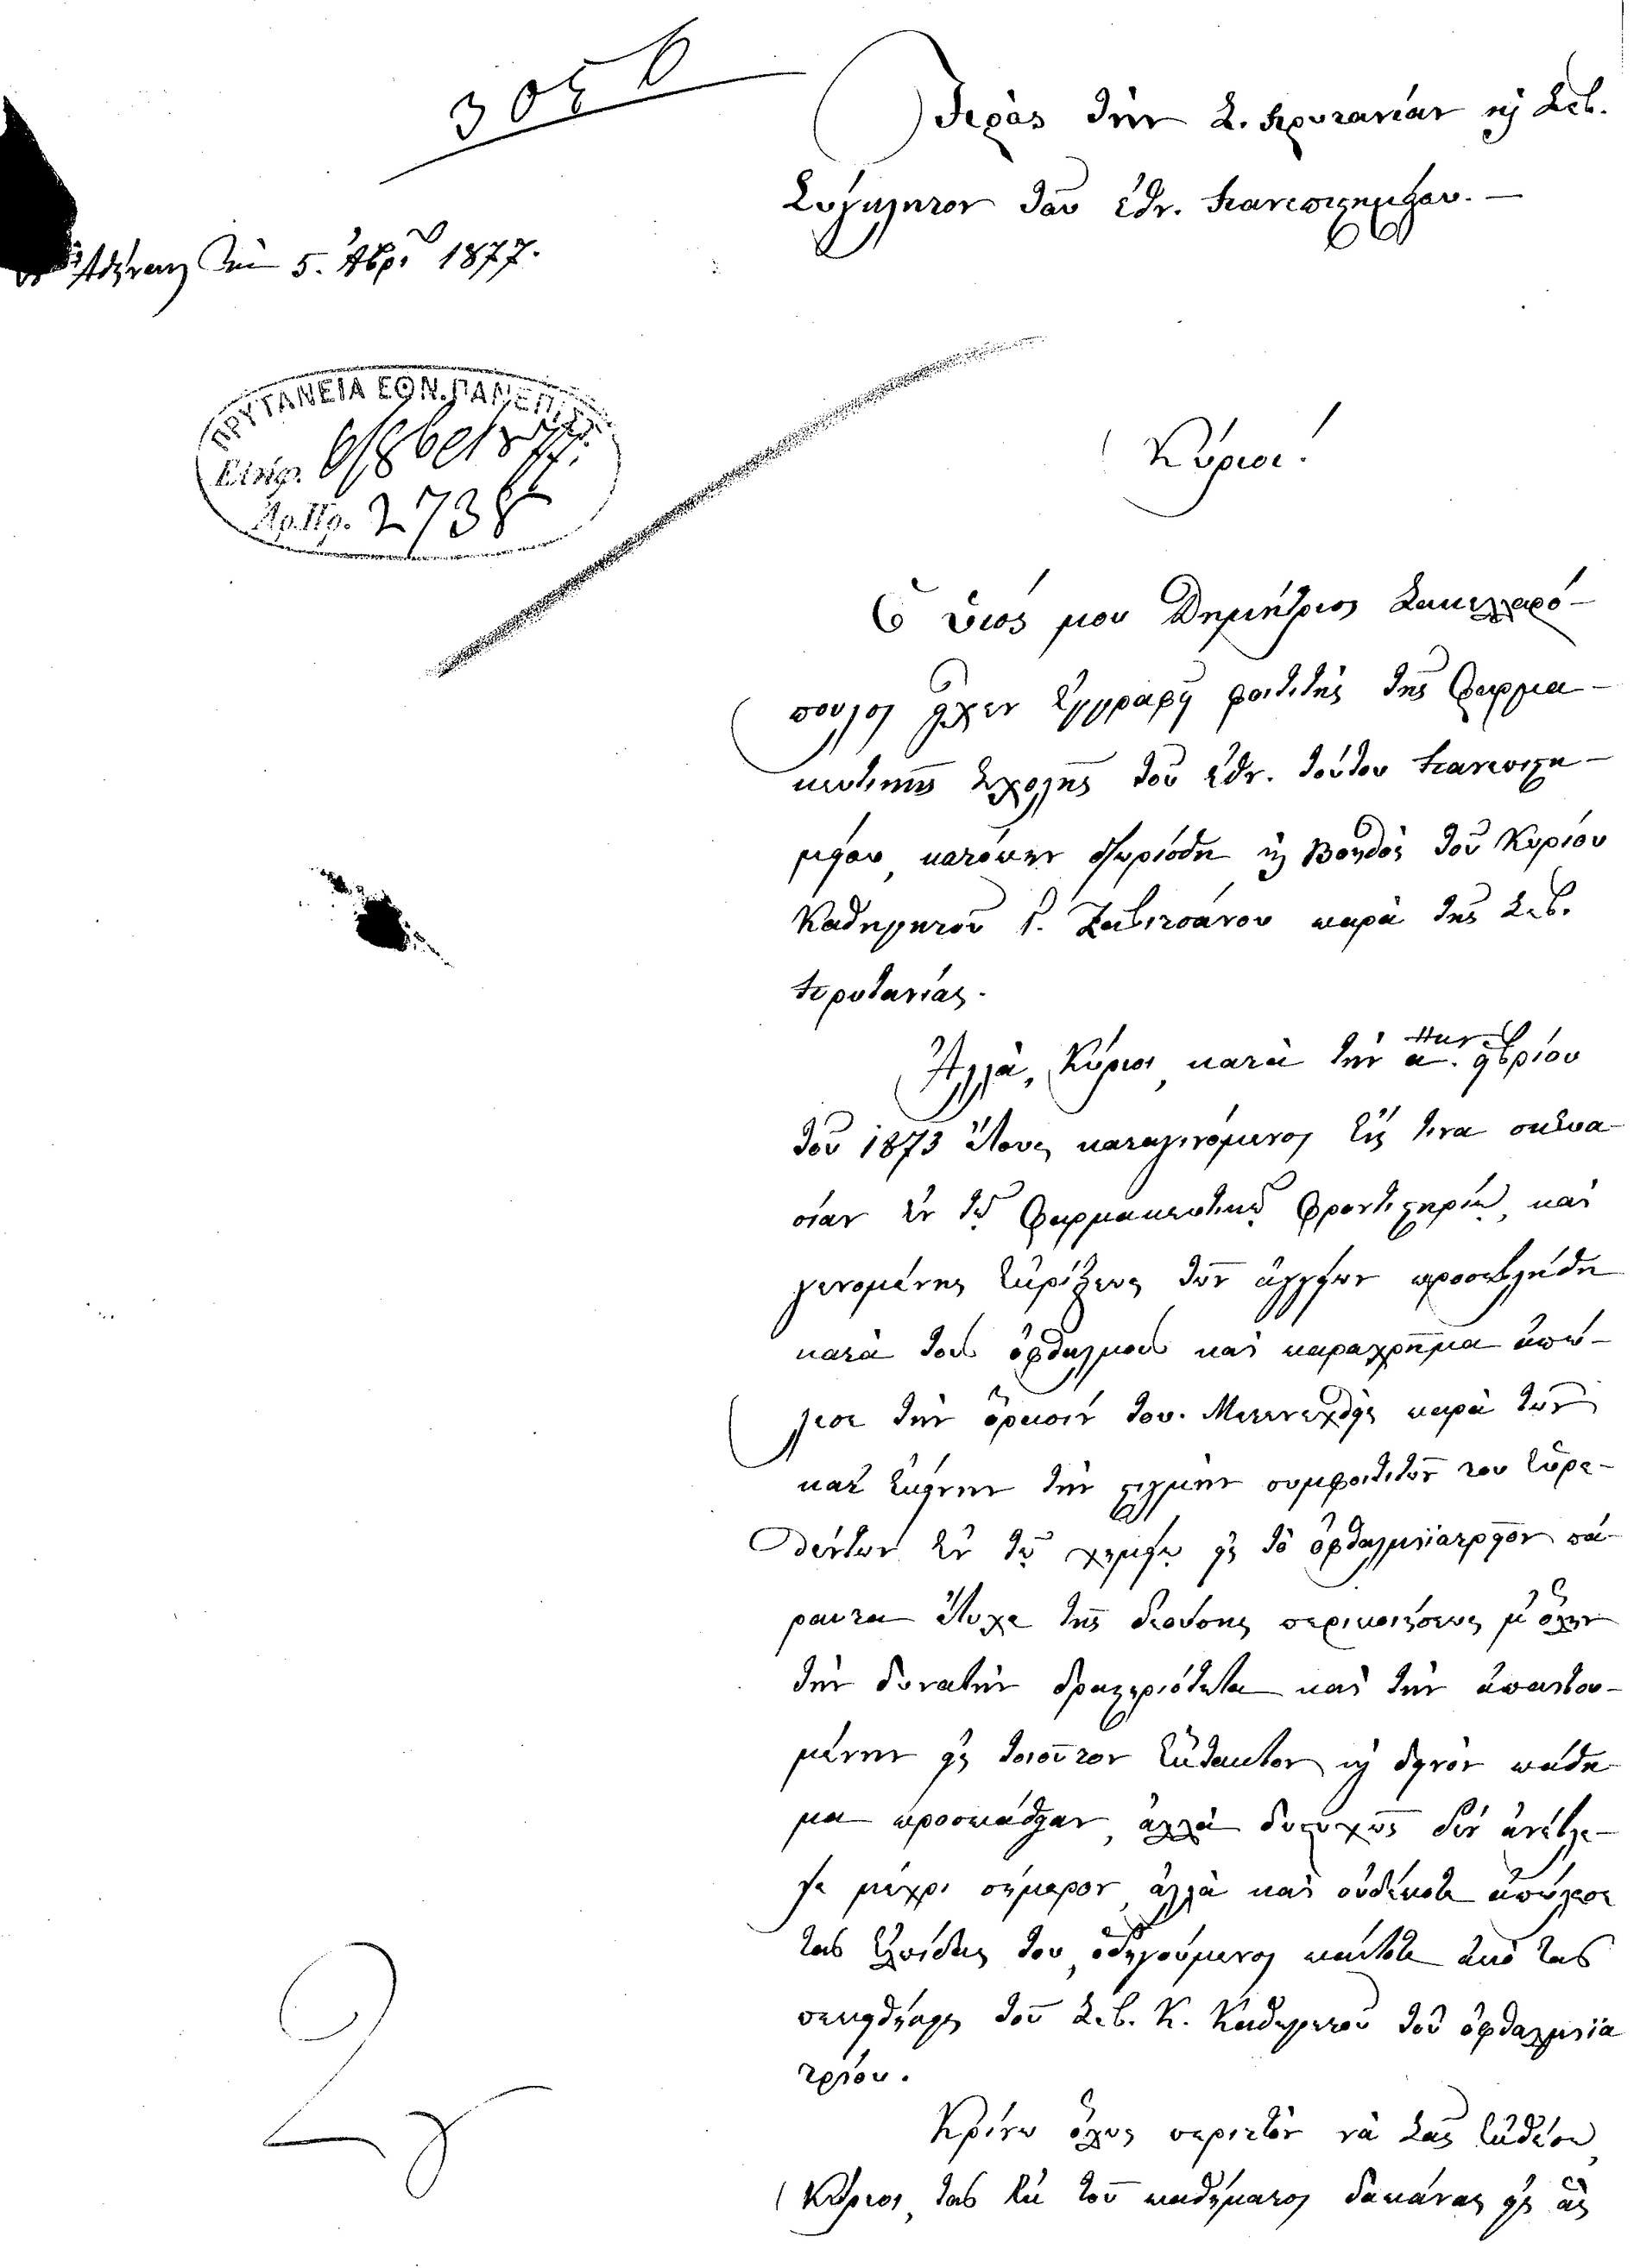 305
Πρὸς τὴν Σ. πρυτανείαν καὶ Σεβ.
Σύγκλητον τοῦ Ἐθν. Πανεπιστημείου. —
Ἀθήνῃσι τῇ 5. Ἀβρ. 1877.
ΠΡΥΤΑΝΕΙΑ ΕΘΝ. ΠΑΝΕΠΙΣΤ.
Εἰσήχ. 77.
Ἀρ.Πρ. 2738
Κύριοι!
Ὁ υἱός μου Δημήτριος Σακελλαρό-
πουλος εἶχεν ἐγγραφῇ φοιτητὴς τῆς Φαρμα-
κευτικῆς Σχολῆς τοῦ Ἐθν. τούτου Πανεπιστη-
μείου, κατόπιν διωρίσθη καὶ Βοηθὸς τοῦ Κυρίου
Καθηγητοῦ Γ. Ζαβιτσάνου παρὰ τῆς Σεβ.
πρυτανείας.
Ἀλλὰ, Κύριοι, κατὰ τὴν α. 9βρίου
τοῦ 1873 ἔτους καταγινόμενος εἴς τινα σκευα-
σίαν ἐν τῷ Φαρμακευτικῷ Φροντιστηρίῳ, καὶ
γενομένης ἐκρήξεως τῶν ἀγγείων προσεβλήθη
κατὰ τοὺς ὀφθαλμοὺς καὶ παραχρῆμα ἀπώ-
λεσε τὴν ὅρασίν του. Μετενεχθεὶς παρὰ τῶν
κατ' ἐκείνην τὴν στιγμὴν συμφοιτητῶν του εὑρε-
θέντων ἐν τῷ χημείῳ εἰς τὸ ὀφθαλμιατρεῖον πά-
ραυτα ἔτυχε τῆς δεούσης περιποιήσεως μ' ὅλην
τὴν δυνατὴν δραστηριότητα καὶ τὴν ἀπαιτου-
μένην εἰς τοιοῦτον ἔκτακτον καὶ δεινὸν πάθη-
μα προσπάθειαν, ἀλλὰ δυστυχῶς δὲν ἀνέβλε-
ψε μέχρι σήμερον, ἀλλὰ καὶ οὐδέποτε ἀπώλεσε
τὰς ἐλπίδας του, ὁδηγούμενος πάντοτε ἀπὸ τὰς
τοῦ Σεβ. Κ. Καθηγητοῦ τοῦ ὀφθαλμεϊα
τρίου.
Κρίνω ὅλως περιττὸν νὰ Σᾶς ἐκθέσω,
Κύριοι, τὰς ἐκ τοῦ παθήματος δαπάνας εἰς ἃς